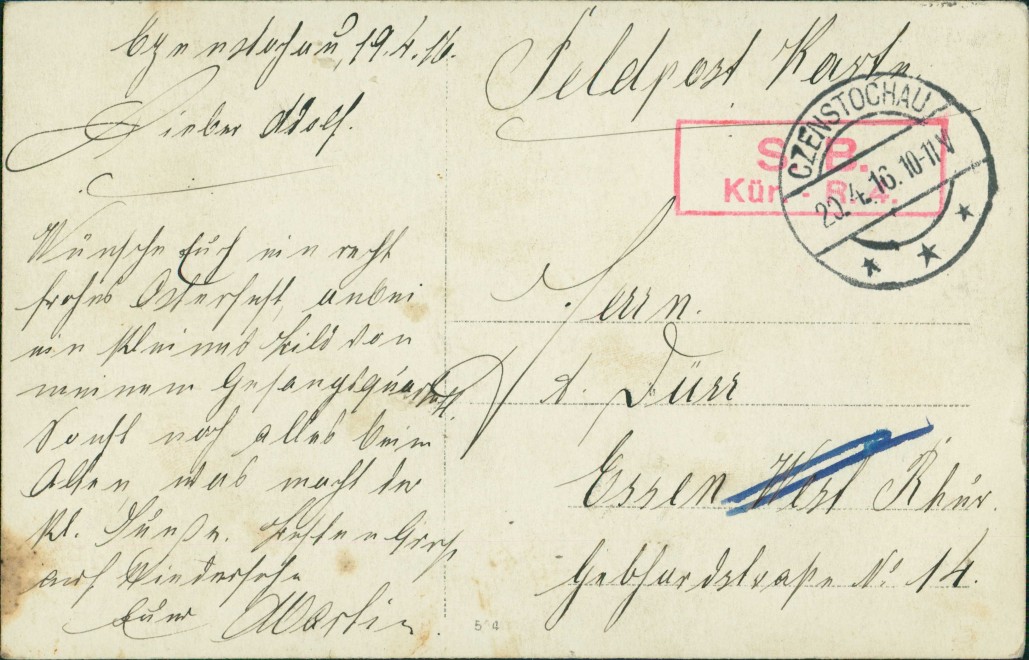 Czenstochau, 19.4.16.
Lieber Adolf.
Wünsche Euch ein recht
frohes Osterfest, anbei
ein kleines Bild von
meinem Gesangsquartett.
Sonst noch alles beim
Alten was macht der
kl. Besten Gruß
auf Wiedersehn
Euer Martin.
Feldpost Karte.
S. B.
Kür. - R. 4.
CZENSTOCHAU
20.4.16. 10-11 V
Herrn.
A. Dürr
Essen West Rhur.
Gebhardstraße No 14.
54